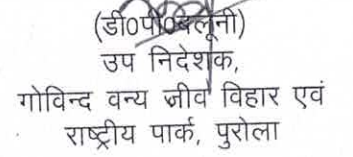 (डी0पी0बलूनी)
उप निदेशक,
गोविन्द वन्य जीव विहार एवं
राष्ट्रीय पार्क, पुरोला